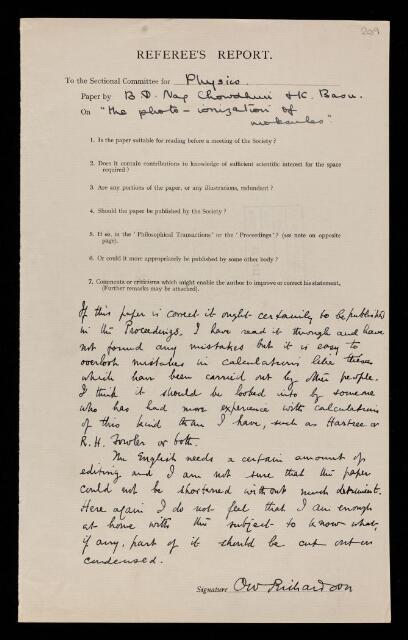 209
REFEREE'S REPORT.
To the Sectional Committee for Physics.
Paper by B. D. Nag Chowdhuri & K. Basu.
On "the photo-ionization of
molecules".
1. Is the paper suitable for reading before a meeting of the Society?
2. Does it contain contributions to knowledge of sufficient scientific interest for the space
required?
3. Are any portions of the paper, or any illustrations, redundant?
4. Should the paper be published by the Society?
5. If so, in the 'Philosophical Transactions' or the 'Proceedings'? (see note on opposite
page).
6. Or could it more appropriately be published by some other body?
7. Comments or criticisms which might enable the author to improve or correct his statement.
(Further remarks may be attached).
If this paper is correct it ought certainly to be published
in the Proceedings. I have read it through and have
not found any mistakes but it is easy to
overlook mistakes in calculations like these
which have been carried out by other people.
I think it should be looked into by someone
who has had more experience with calculations
of this kind than I have, such as Hartree or
R. H. Fowler or both.
The English needs a certain amount of
editing and I am not sure that the paper
could not be shortened without much detriment.
Here again I do not feel that I am enough
at home with the subject to know what,
if any, part of it should be cut out or
condensed.
Signature OW Richardson